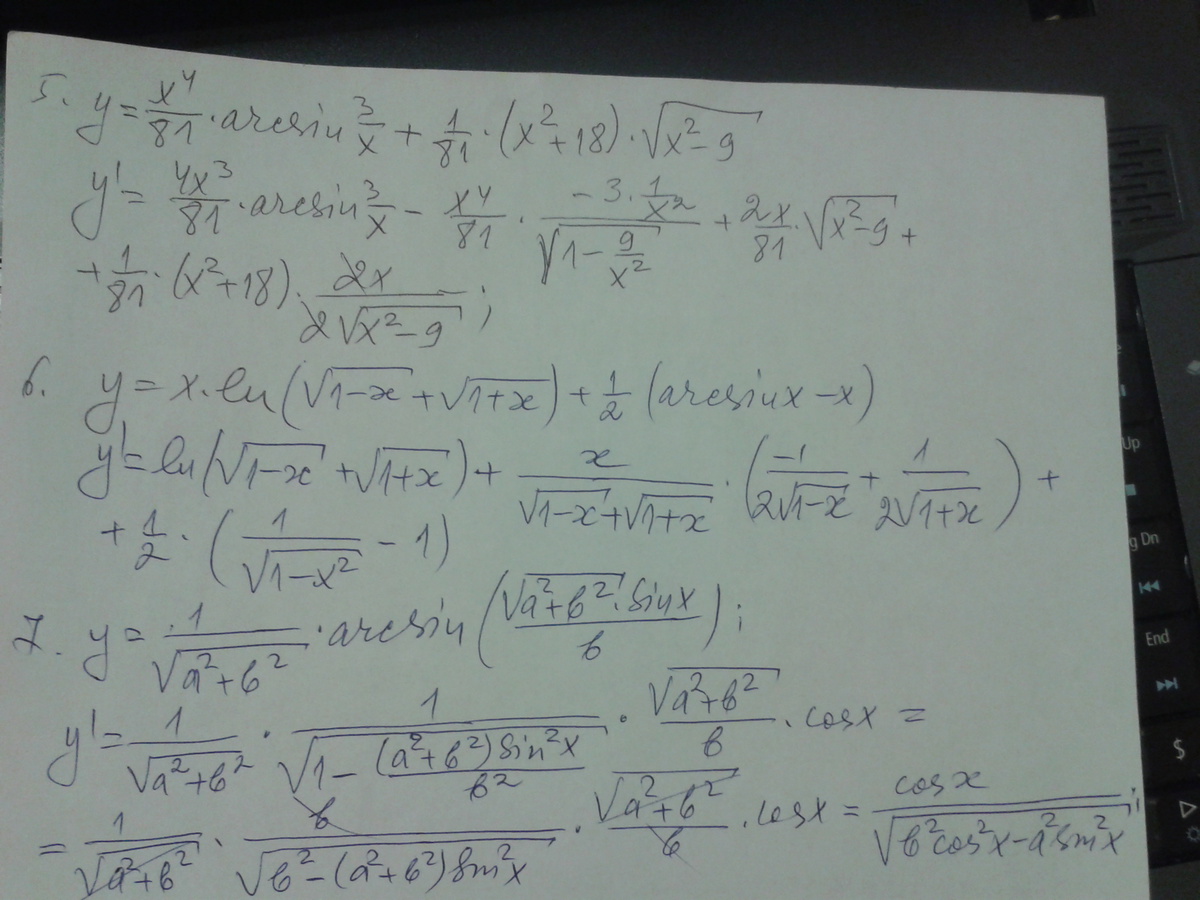 5. y = x⁴/81 · arcsin 3/x + 1/81 · (x² + 18) · √(x² − 9)
y' = 4x³/81 · arcsin 3/x − x⁴/81 · (−3 · 1/x²)/√(1 − 9/x²) + 2x/81 · √(x² − 9) +
+ 1/81 · (x² + 18) · 2x/(2√(x² − 9));
6. y = x · ln(√(1−x) + √(1+x)) + 1/2 (arcsin x − x)
y' = ln(√(1−x) + √(1+x)) + x/(√(1−x) + √(1+x)) · (−1/(2√(1−x)) + 1/(2√(1+x))) +
+ 1/2 · (1/√(1−x²) − 1)
7. y = 1/√(a² + b²) · arcsin(√(a² + b²) · sin x/b);
y' = 1/√(a² + b²) · 1/√(1 − (a² + b²) sin²x/b²) · √(a² + b²)/b · cos x =
= 1/√(a² + b²) · b/√(b² − (a² + b²) sin²x) · √(a² + b²)/b · cos x = cos x/√(b² cos²x − a² sin²x);
Up
g Dn
End
$